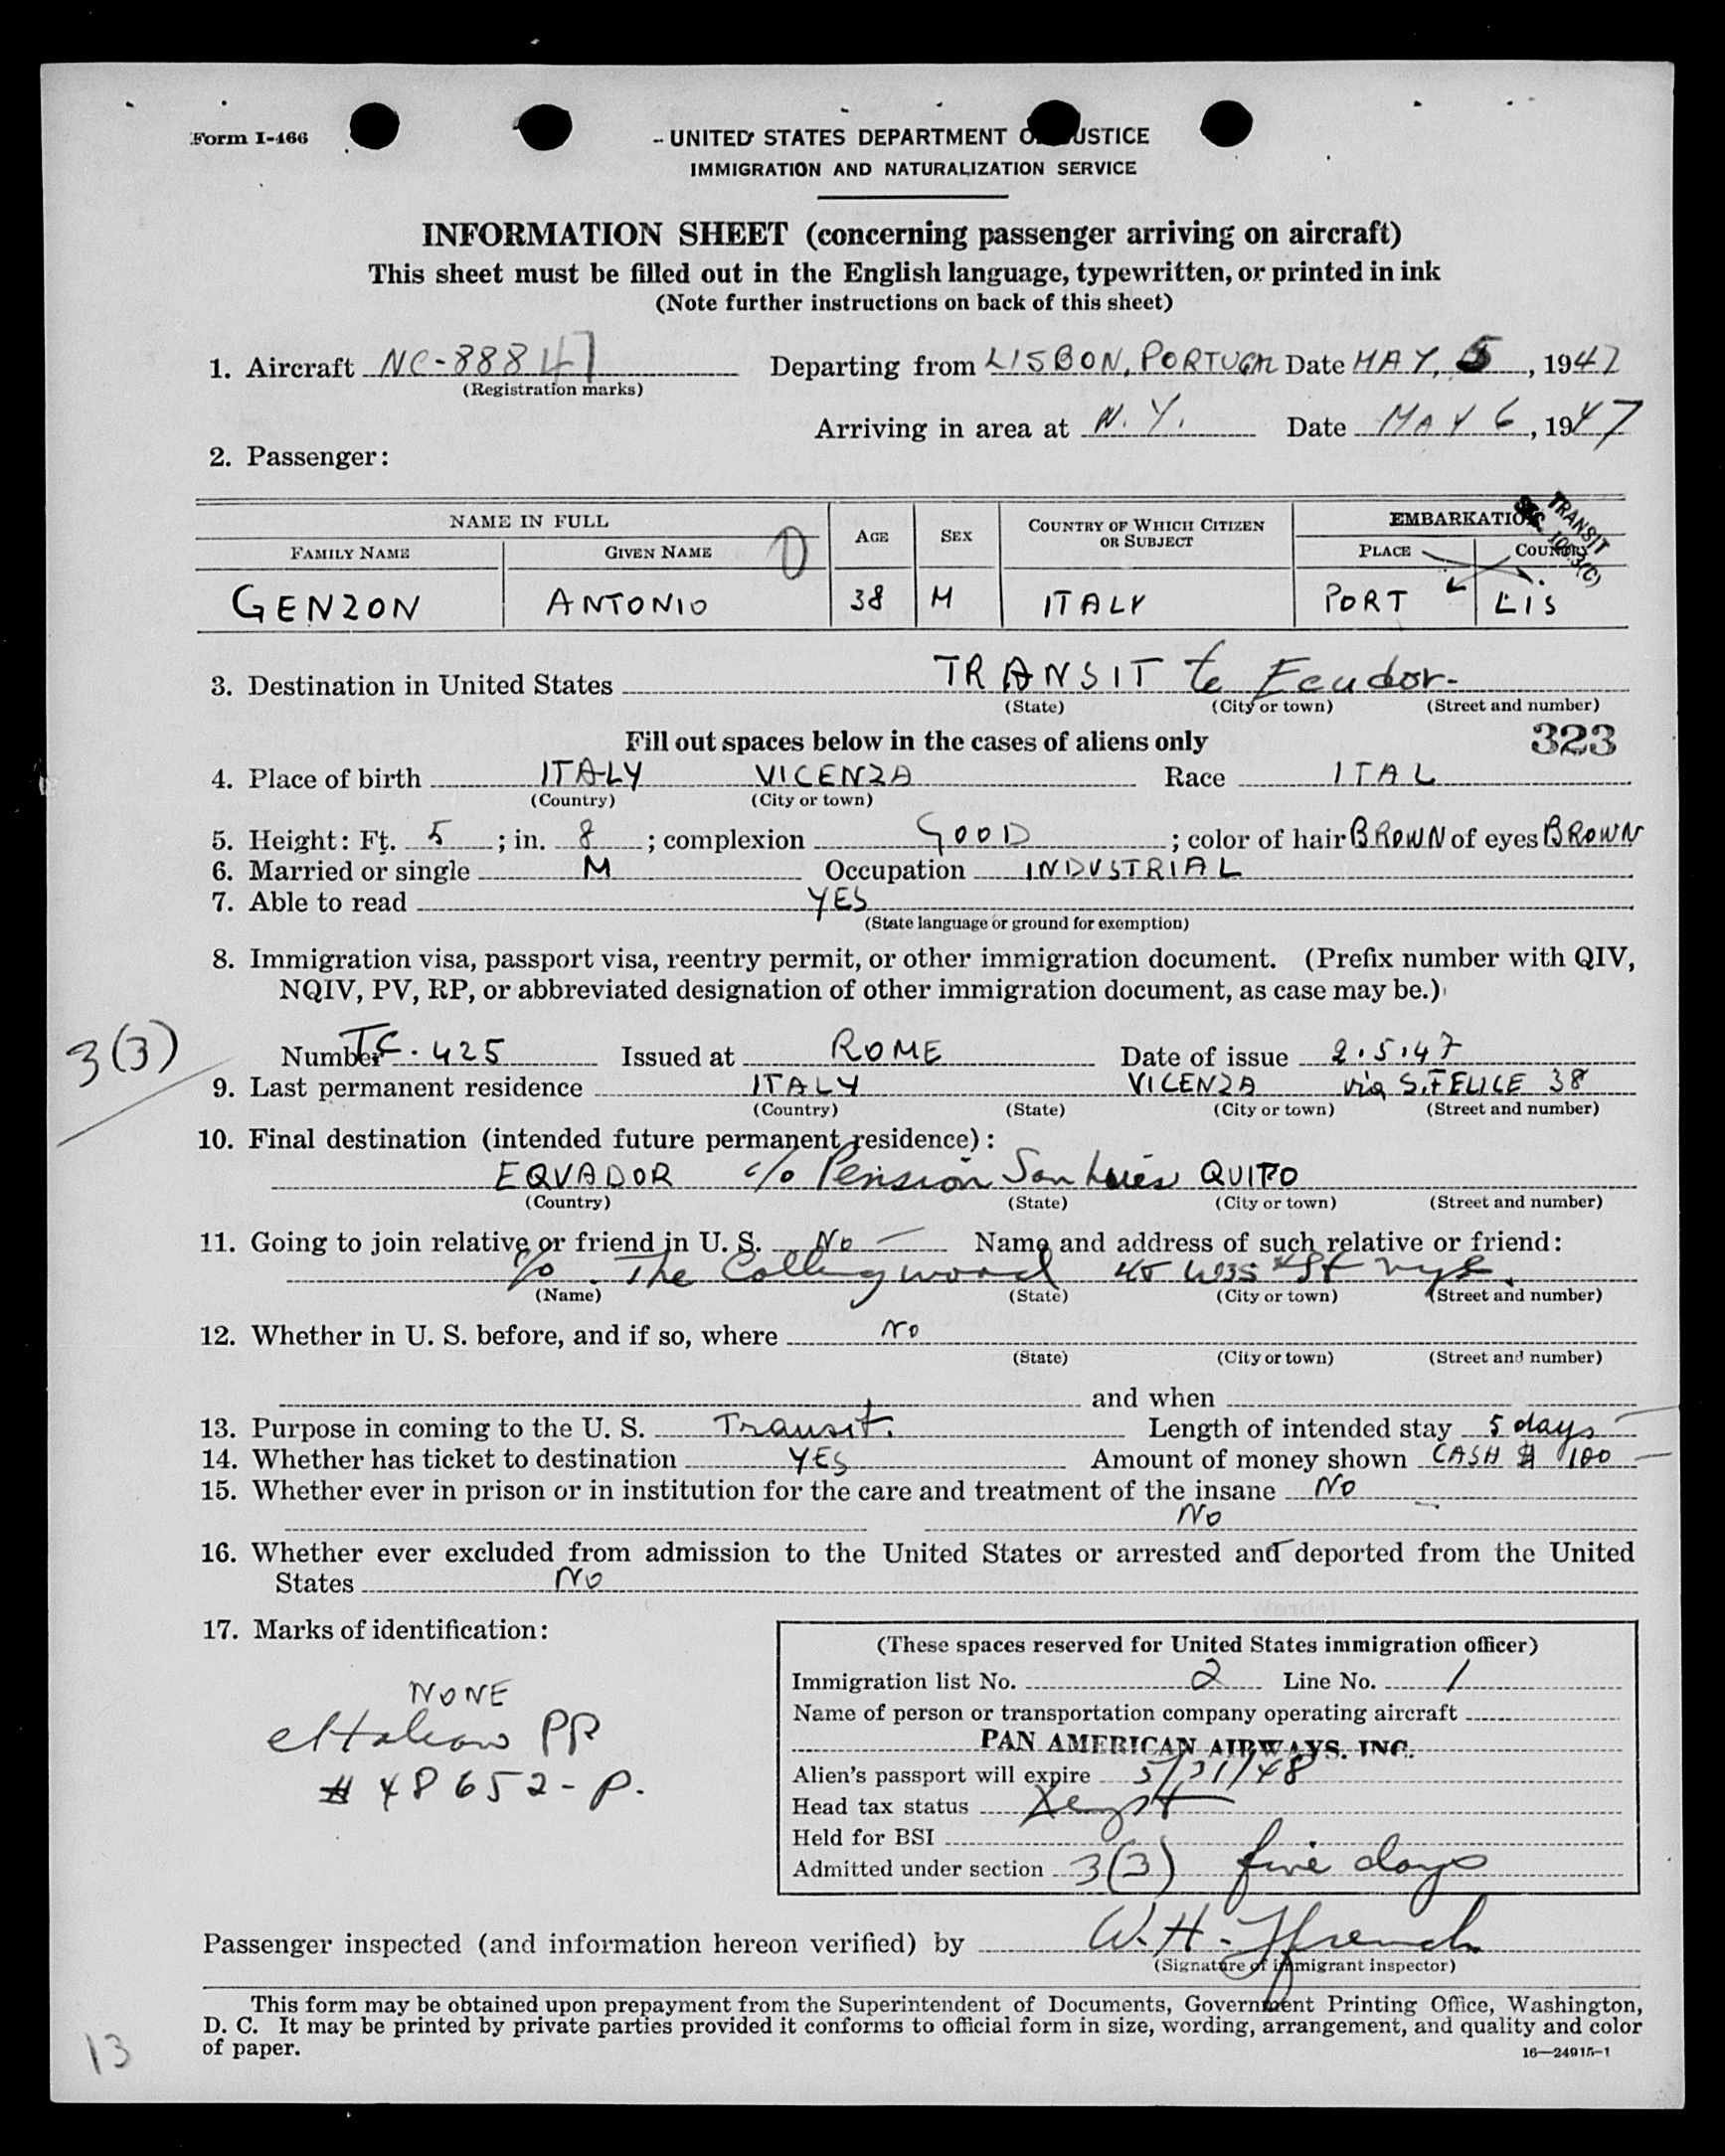 Form I-466
UNITED STATES DEPARTMENT O JUSTICE
IMMIGRATION AND NATURALIZATION SERVICE
INFORMATION SHEET (concerning passenger arriving on aircraft)
This sheet must be filled out in the English language, typewritten, or printed in ink
(Note further instructions on back of this sheet)
1. Aircraft NC-88847 Departing from LISBON, PORTUGAL Date MAY, 5, 1947
(Registration marks)
Arriving in area at N.Y. Date MAY 6, 1947
2. Passenger:
NAME IN FULL AGE SEX COUNTRY OF WHICH CITIZEN OR SUBJECT EMBARKATION
FAMILY NAME GIVEN NAME PLACE COUNTRY
TRANSIT
GENZON ANTONIO 38 M ITALY PORT LIS
3. Destination in United States TRANSIT to Ecudor-
(State) (City or town) (Street and number)
Fill out spaces below in the cases of aliens only 323
4. Place of birth ITALY VICENZA Race ITAL
(Country) (City or town)
5. Height: Ft. 5; in. 8; complexion GOOD; color of hair BROWN of eyes BROWN
6. Married or single M Occupation INDUSTRIAL
7. Able to read YES
(State language or ground for exemption)
8. Immigration visa, passport visa, reentry permit, or other immigration document. (Prefix number with QIV,
NQIV, PV, RP, or abbreviated designation of other immigration document, as case may be.)
3(3)
Number TC. 425 Issued at ROME Date of issue 2.5.47
9. Last permanent residence ITALY VICENZA via S. FELICE 38
(Country) (State) (City or town) (Street and number)
10. Final destination (intended future permanent residence):
EQVADOR c/o Pension San Luis QUITO
(Country) (State) (City or town) (Street and number)
11. Going to join relative or friend in U. S. No Name and address of such relative or friend:
c/o The Collingwood 45 W 35 St nyc.
(Name) (State) (City or town) (Street and number)
12. Whether in U. S. before, and if so, where No
(State) (City or town) (Street and number)
and when
13. Purpose in coming to the U. S. Transit. Length of intended stay 5 days
14. Whether has ticket to destination YES Amount of money shown CASH $ 100
15. Whether ever in prison or in institution for the care and treatment of the insane No
No
16. Whether ever excluded from admission to the United States or arrested and deported from the United
States No
17. Marks of identification:
NONE
Italian PP
# 48652-P.
(These spaces reserved for United States immigration officer)
Immigration list No. 2 Line No. 1
Name of person or transportation company operating aircraft
PAN AMERICAN AIRWAYS. INC.
Alien's passport will expire 5/31/48
Head tax status
Held for BSI
Admitted under section 3(3) five days
Passenger inspected (and information hereon verified) by W. H. Ffrench
(Signature of immigrant inspector)
This form may be obtained upon prepayment from the Superintendent of Documents, Government Printing Office, Washington,
D. C. It may be printed by private parties provided it conforms to official form in size, wording, arrangement, and quality and color
of paper.
16—24915-1
13